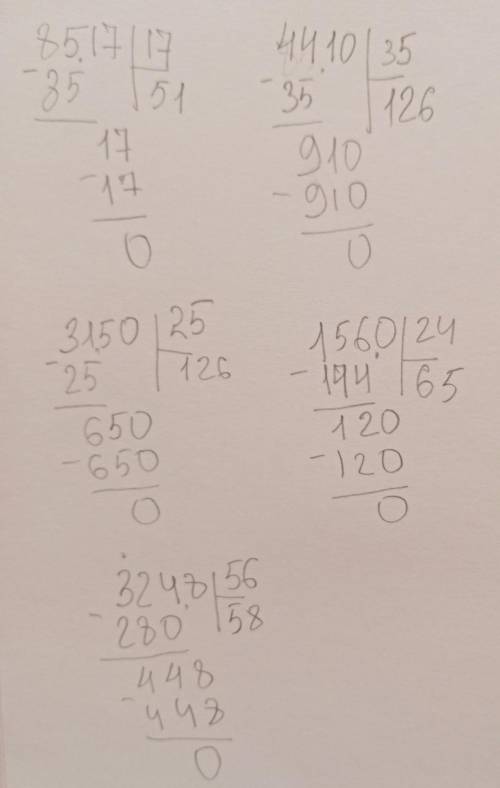 85.17 | 17
- 85 | 51
17
- 17
0
44.10 | 35
- 35 | 126
910
- 910
0
31.50 | 25
- 25 | 126
650
- 650
0
156.0 | 24
- 144 | 65
120
- 120
0
324.8 | 56
- 280 | 58
448
- 448
0